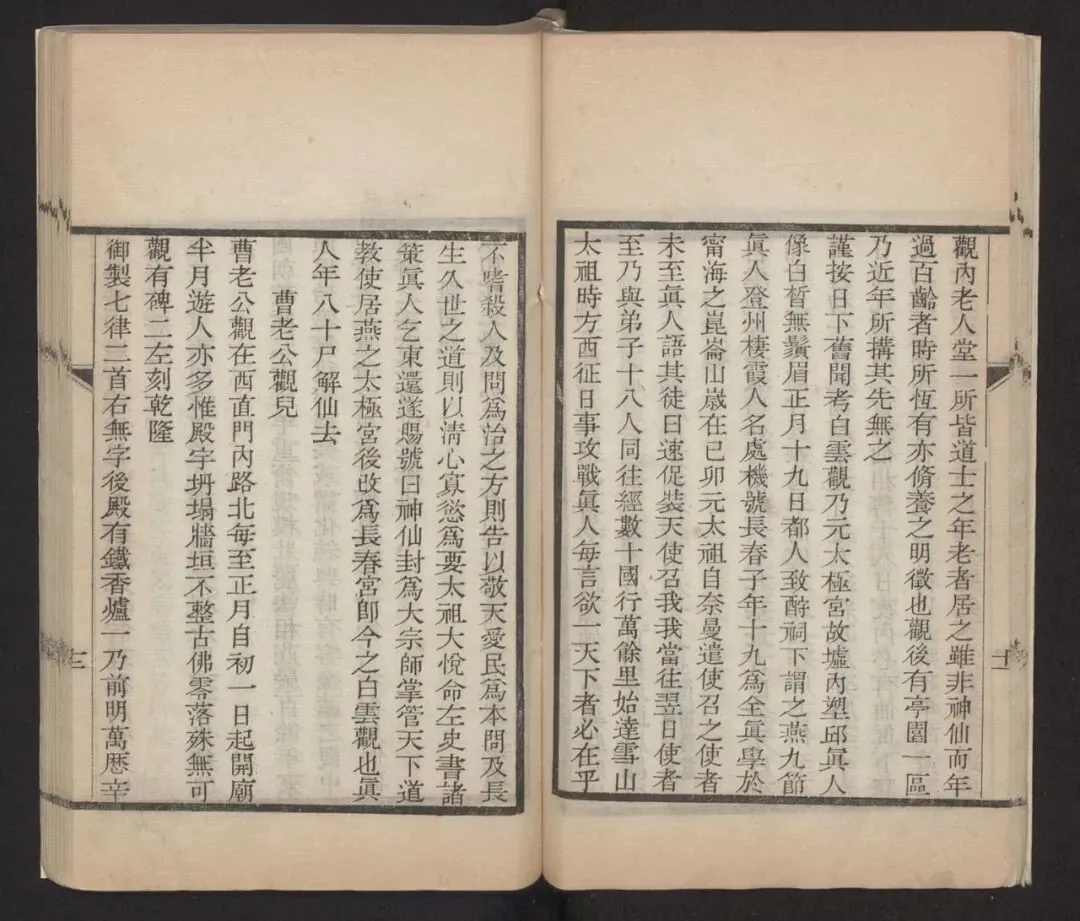 觀內老人堂一所皆道士之年老者居之雖非神仙而年
過百齡者時所恆有亦脩養之明徵也觀後有亭園一區
乃近年所搆其先無之
謹按日下舊聞考白雲觀乃元太極宮故墟內塑邱眞人
像白皙無鬚眉正月十九日都人致酹祠下謂之燕九節
眞人登州棲霞人名處機號長春子年十九爲全眞學於
甯海之崑崙山嵗在已卯元太祖自奈曼遣使召之使者
未至眞人語其徒曰速促裝天使召我我當往翌日使者
至乃與弟子十八人同往經數十國行萬餘里始達雪山
太祖時方西征日事攻戰眞人每言欲一天下者必在乎
十一
不嗜殺人及問爲治之方則告以敬天愛民爲本問及長
生久世之道則以淸心寡慾爲要太祖大悅命左史書諸
策眞人乞東還遂賜號曰神仙封爲大宗師掌管天下道
教使居燕之太極宮後改爲長春宮卽今之白雲觀也眞
人年八十尸解仙去
曹老公觀兒
曹老公觀在西直門內路北每至正月自初一日起開廟
半月遊人亦多惟殿宇坍塌牆垣不整古佛零落殊無可
觀有碑二左刻乾隆
御製七律二首右無字後殿有鐵香爐一乃前明萬厯辛